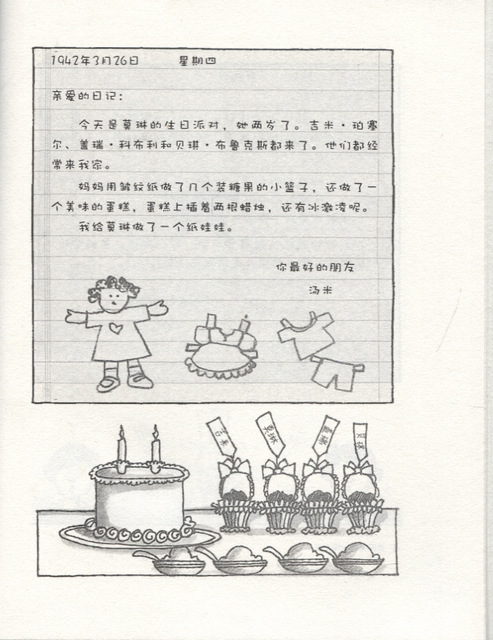 1942年3月26日 星期四
亲爱的日记：
今天是莫琳的生日派对，她两岁了。吉米·珀塞
尔、盖瑞·科布利和贝琪·布鲁克斯都来了。他们都经
常来我家。
妈妈用皱纹纸做了几个装糖果的小篮子，还做了一
个美味的蛋糕，蛋糕上插着两根蜡烛，还有冰激凌呢。
我给莫琳做了一个纸娃娃。
你最好的朋友
汤米
吉米 莫琳 盖瑞 贝琪